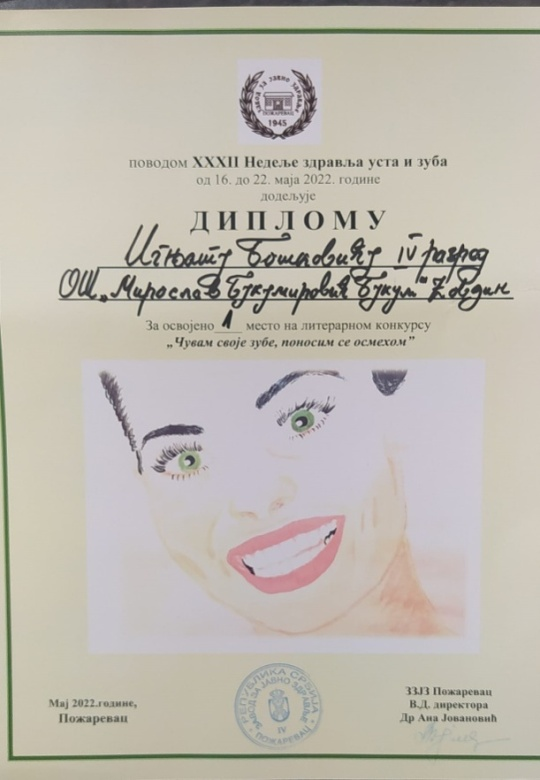 ЗАВОД ЗА ЈАВНО ЗДРАВЉЕ
ПОЖАРЕВАЦ
1945
поводом XXXII Недеље здравља уста и зуба
од 16. до 22. маја 2022. године
додељује
ДИПЛОМУ
Игњату Бошковићу IV разред
ОШ „Мирослав Букумировић Букум"
За освојено 1 место на литерарном конкурсу
„Чувам своје зубе, поносим се осмехом”
Мај 2022.године,
Пожаревац
РЕПУБЛИКА СРБИЈА
ЗАВОД ЗА ЈАВНО ЗДРАВЉЕ
IV
ПОЖАРЕВАЦ
ЗЗЈЗ Пожаревац
В.Д. директора
Др Ана Јовановић